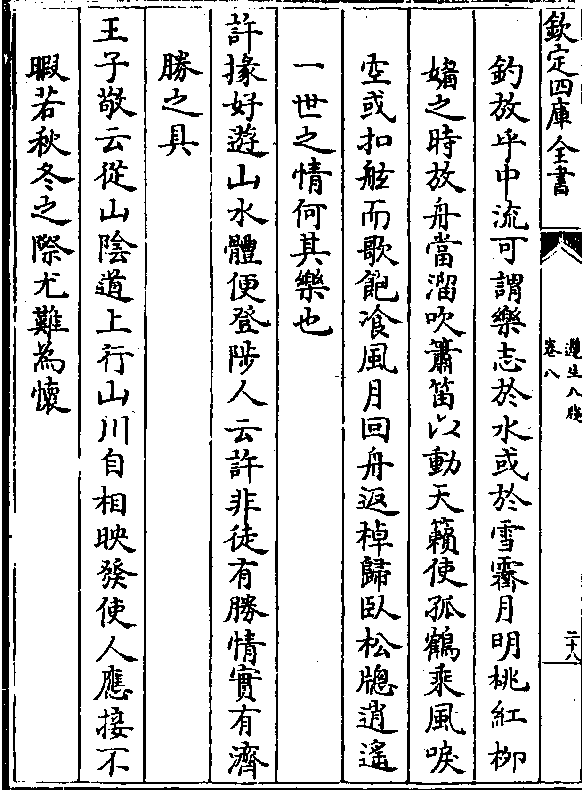 欽定四庫全書
遵生八牋
卷八
二十八
釣放乎中流可謂樂志於水或於雪霽月明桃紅栁
媚之時放舟當溜吹簫笛以動天籟使孤鶴乘風唳
空或扣舷而歌飽飡風月回舟返棹歸臥松牕逍遙
一世之情何其樂也
許掾好遊山水體便登陟人云許非徒有勝情實有濟
勝之具
王子敬云從山陰道上行山川自相映發使人應接不
暇若秋冬之際尤難為懷